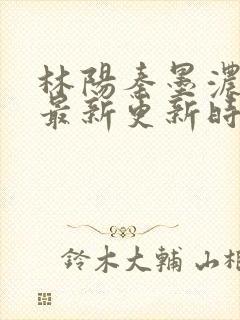 林陽秦墨濃
最新更新時
鈴木大輔 山相